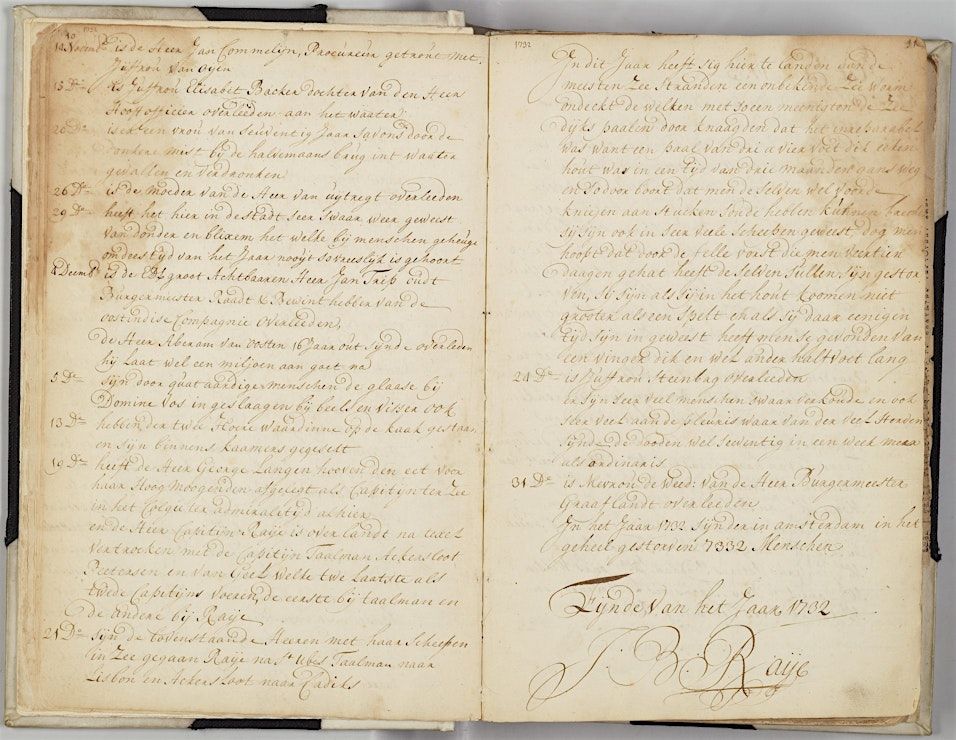 10 Novemb is de Heer Jan Commelijn, Procureur getrout met
Juffrou van Oijen
15 De is Juffrou Elisabet Backer dochter van den Heer
Hooftofficier overleeden aan het waater
20 De is er een vrou van seuventig Jaar savons door de
donkere mist bij de halvemaans brug int waater
gevallen en verdronken
26 De is de moeder van de Heer van uijtregt overleeden
29 De heeft het hier in de stadt seer swaar weer geweest
van donder en blixem het welke bij menschen geheuge
om deese tijd van het Jaar nooijt so vreeslijk is gehoort
Decemb is de Ed groot Achtbaaren Heer Jan Trip oudt
Burgermeester Raadt & Bewint hebber van de
oostindise Compagnie overleeden,
de Heer Aberam van oosten 16 Jaar out synde overleeden
hij Laat wel een miljoen aan goet na
5 De sijn door quat aardige menschen de glaase bij
Domine Vos in geslaagen bij beels en visser ook
13 De hebben der twee Hoere waardinne op de kaak gestaan
en sijn binnens kaamers gegeselt
19 De heeft de Heer George Langen hooven den eet voor
haar Hoog moogenden afgelegt als Capitijn ter Zee
in het Colegie ter admiraliteijt alhier
en de Heer Capitijn Raije is over landt na texel
vertrocken met de Capitijn Taalman Ackersloot
Peetersen en van Geel welke twe laatste als
twede Capitijns voeren, de eerste bij taalman en
de andere bij Raije
21 De sijn de bovenstaande Heeren met haar Scheepen
in Zee gegaan Raije na St ubes Taalman naar
Lisbon en Ackersloot naar Cadiks
1732
In dit Jaar heeft sig hier te landen aan de
meesten Zee Stranden een onbekende Zee worm
ondeckt de welken met soeen meenigte de Zee
dijks paalen door knaagden dat het inreparabel
was want een paal van dri a vier voet dik eeken
hout was in een tijd van drie maanden gans weg
en so door boort dat men de selven wel voor de
knieijen aan stucken soude hebben kunnen breeke
sij sijn ook in seer veele scheepen geweest, dog men
hoopt dat door de felle vorst die men veertien
daagen gehat heeft de selven sullen sijn gestor
ven, sij sijn als sij in het hout koomen niet
grooter als een spelt en als sij daar eenigen
tijd sijn in geweest heeft mense gevonden van
een vinger dik en wel ander half voet lang
24 De is Juffrou Steinbag overleeden
er sijn seer veel menschen swaar verkoude en ook
seer veel aan de pleuris waar van der veel sterven
sijnde de dooden wel seventig in een week meer
als ordinaris
31 De is Mevrou de Weed: van de Heer Burgermeester
Graaflandt overleeden
In het Jaar 1732 sijn der in amsterdam in het
geheel gestorven 7332 Menschen
Eijnde van het Jaar 1732
J: B: Raije